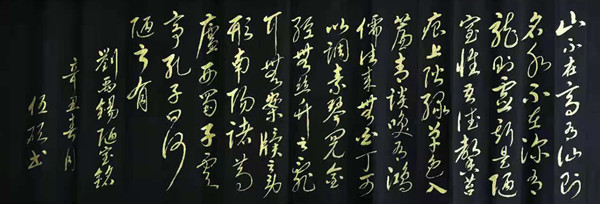 山不在高有仙则
名水不在深有
龍则靈斯是陋
室惟吾德馨苔
痕上階绿草色入
簾青談笑有鴻
儒往来無白丁可
以調素琴閱金
經無絲竹之亂
耳無案牘之勞
形南陽諸葛
廬西蜀子雲
亭孔子曰何
陋之有
劉禹錫陋室銘
辛丑春月
伍 书